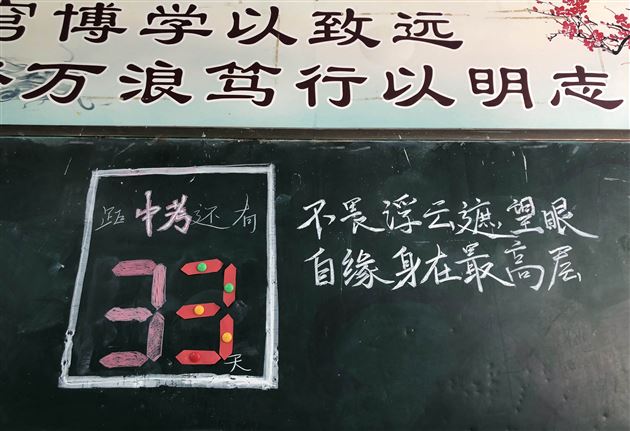 博学以致远
万浪笃行以明志
距中考还有
33
天
不畏浮云遮望眼
自缘身在最高层